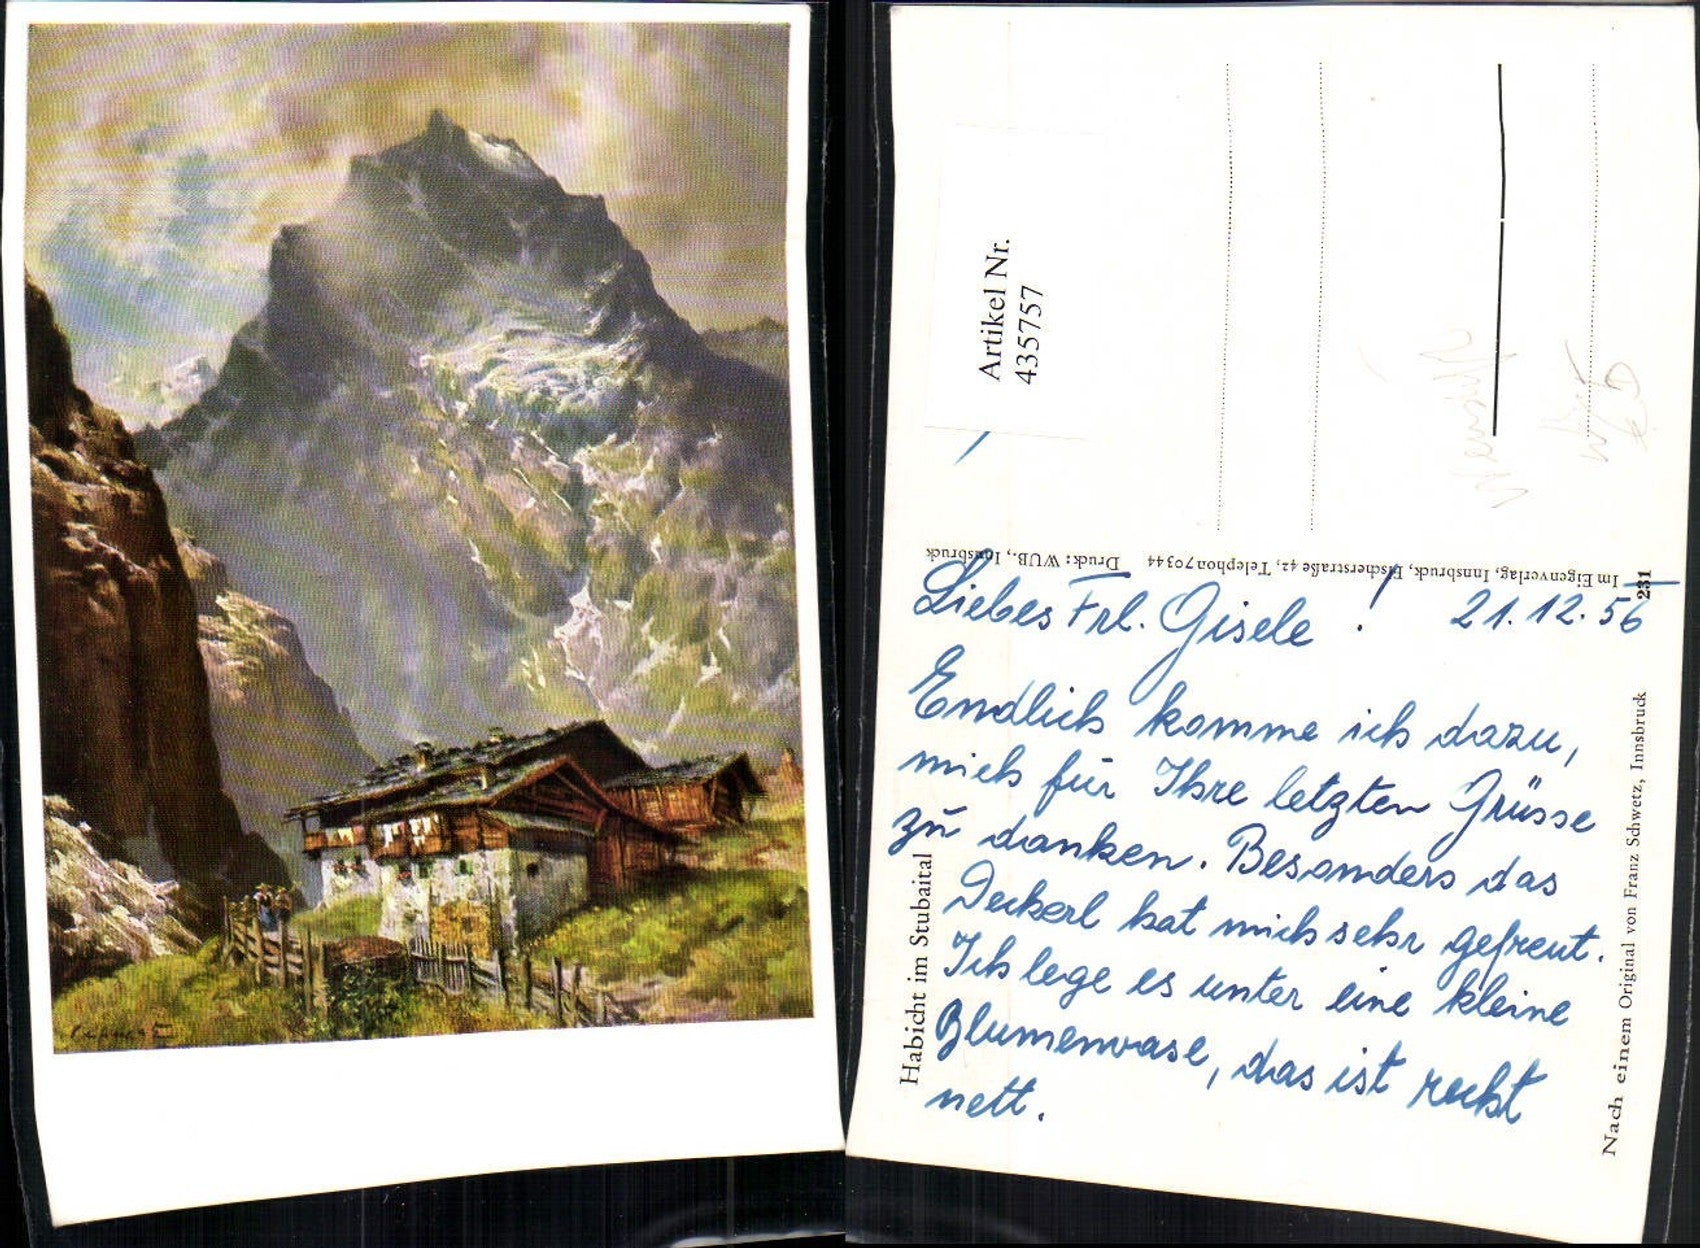 Artikel Nr.
435757
Im Eigenverlag, Innsbruck, Fischerstraße 42, Telephon 70344 Druck: WUB., Innsbruck
231
Liebes Frl. Gisele ! 21.12.56
Endlich komme ich dazu,
mich für Ihre letzten Grüsse
zu danken. Besonders das
Deckerl hat mich sehr gefreut.
Ich lege es unter eine kleine
Blumenvase, das ist recht
nett.
Habicht im Stubaital
Nach einem Original von Franz Schwetz, Innsbruck